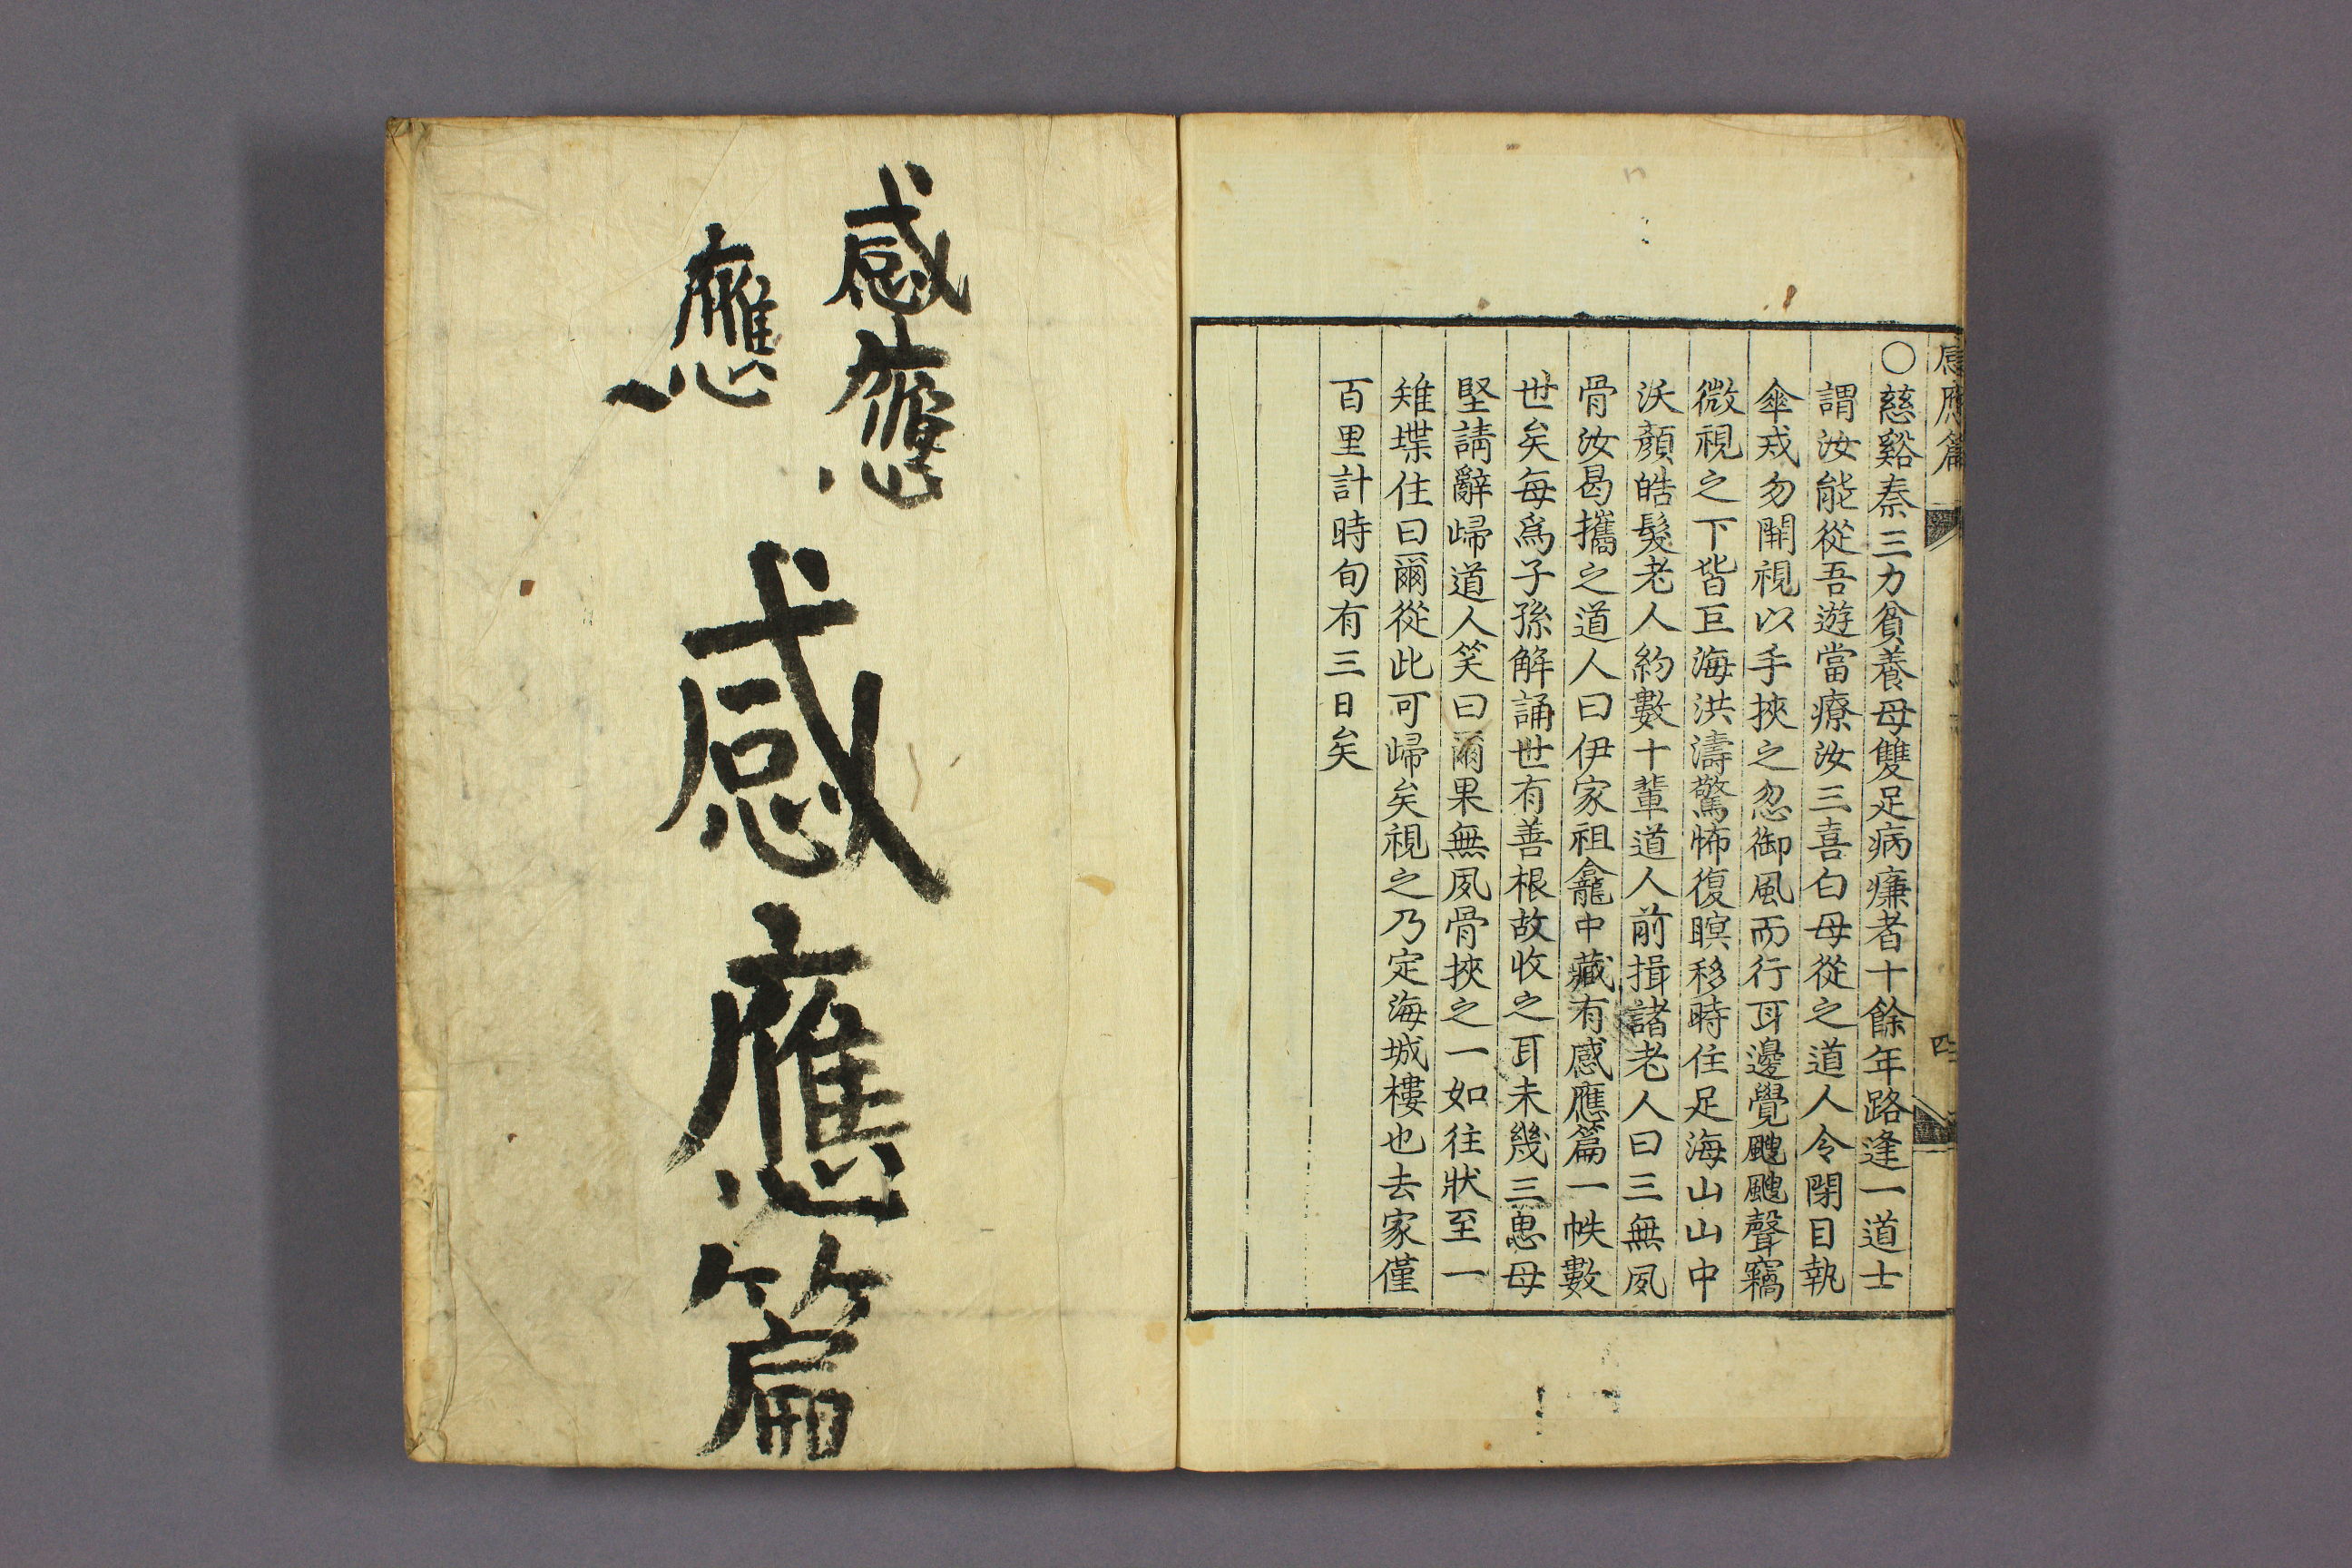 感應篇
○慈谿秦三力貧養母雙足病㾾者十餘年路逢一道士
謂汝能從吾遊當療汝三喜白母從之道人令閉目執
傘戒勿開視以手挾之忽御風而行耳邊覺颼颼聲竊
微視之下皆巨海洪濤驚怖復瞑移時住足海山山中
沃顏皓髮老人約數十輩道人前揖諸老人曰三無夙
骨汝曷攜之道人曰伊家祖龕中藏有感應篇一帙數
世矣每爲子孫解誦世有善根故收之耳未幾三思母
堅請辭歸道人笑曰爾果無夙骨挾之一如往狀至一
雉堞住曰爾從此可歸矣視之乃定海城樓也去家僅
百里計時旬有三日矣
感應
應
感應篇